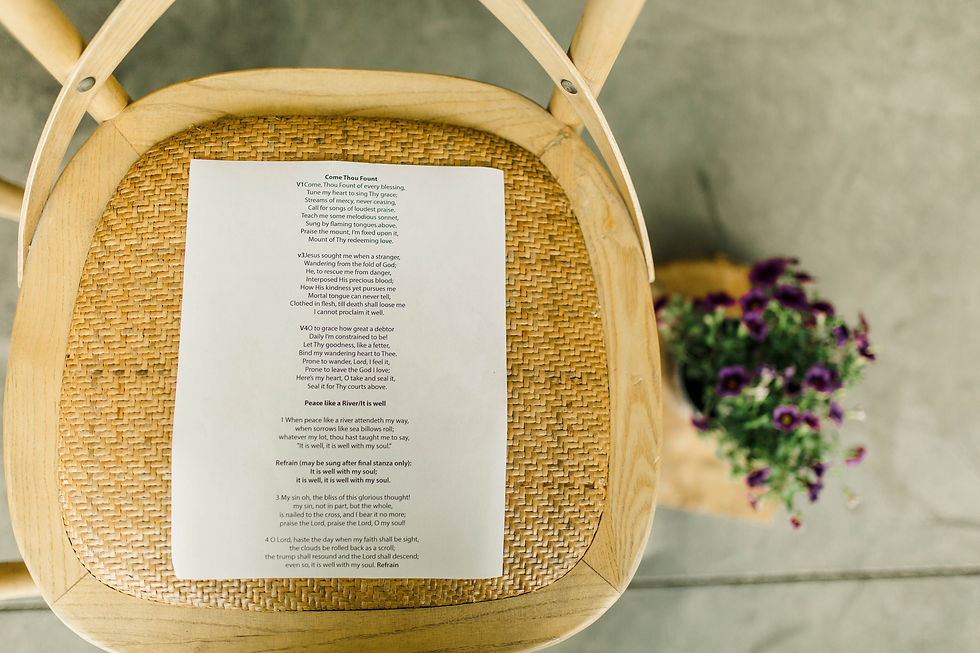 Come Thou Fount
V1Come, Thou Fount of every blessing,
Tune my heart to sing Thy grace;
Streams of mercy, never ceasing,
Call for songs of loudest praise.
Teach me some melodious sonnet,
Sung by flaming tongues above.
Praise the mount, I'm fixed upon it,
Mount of Thy redeeming love.
v3Jesus sought me when a stranger,
Wandering from the fold of God;
He, to rescue me from danger,
Interposed His precious blood;
How His kindness yet pursues me
Mortal tongue can never tell,
Clothed in flesh, till death shall loose me
I cannot proclaim it well.
V4O to grace how great a debtor
Daily I'm constrained to be!
Let Thy goodness, like a fetter,
Bind my wandering heart to Thee.
Prone to wander, Lord, I feel it,
Prone to leave the God I love;
Here's my heart, O take and seal it,
Seal it for Thy courts above.
Peace like a River/It is well
1 When peace like a river attendeth my way,
when sorrows like sea billows roll;
whatever my lot, thou hast taught me to say,
"It is well, it is well with my soul."
Refrain (may be sung after final stanza only):
It is well with my soul;
it is well, it is well with my soul.
3 My sin oh, the bliss of this glorious thought!
my sin, not in part, but the whole,
is nailed to the cross, and I bear it no more;
praise the Lord, praise the Lord, O my soul!
4 O Lord, haste the day when my faith shall be sight,
the clouds be rolled back as a scroll;
the trump shall resound and the Lord shall descend;
even so, it is well with my soul. Refrain